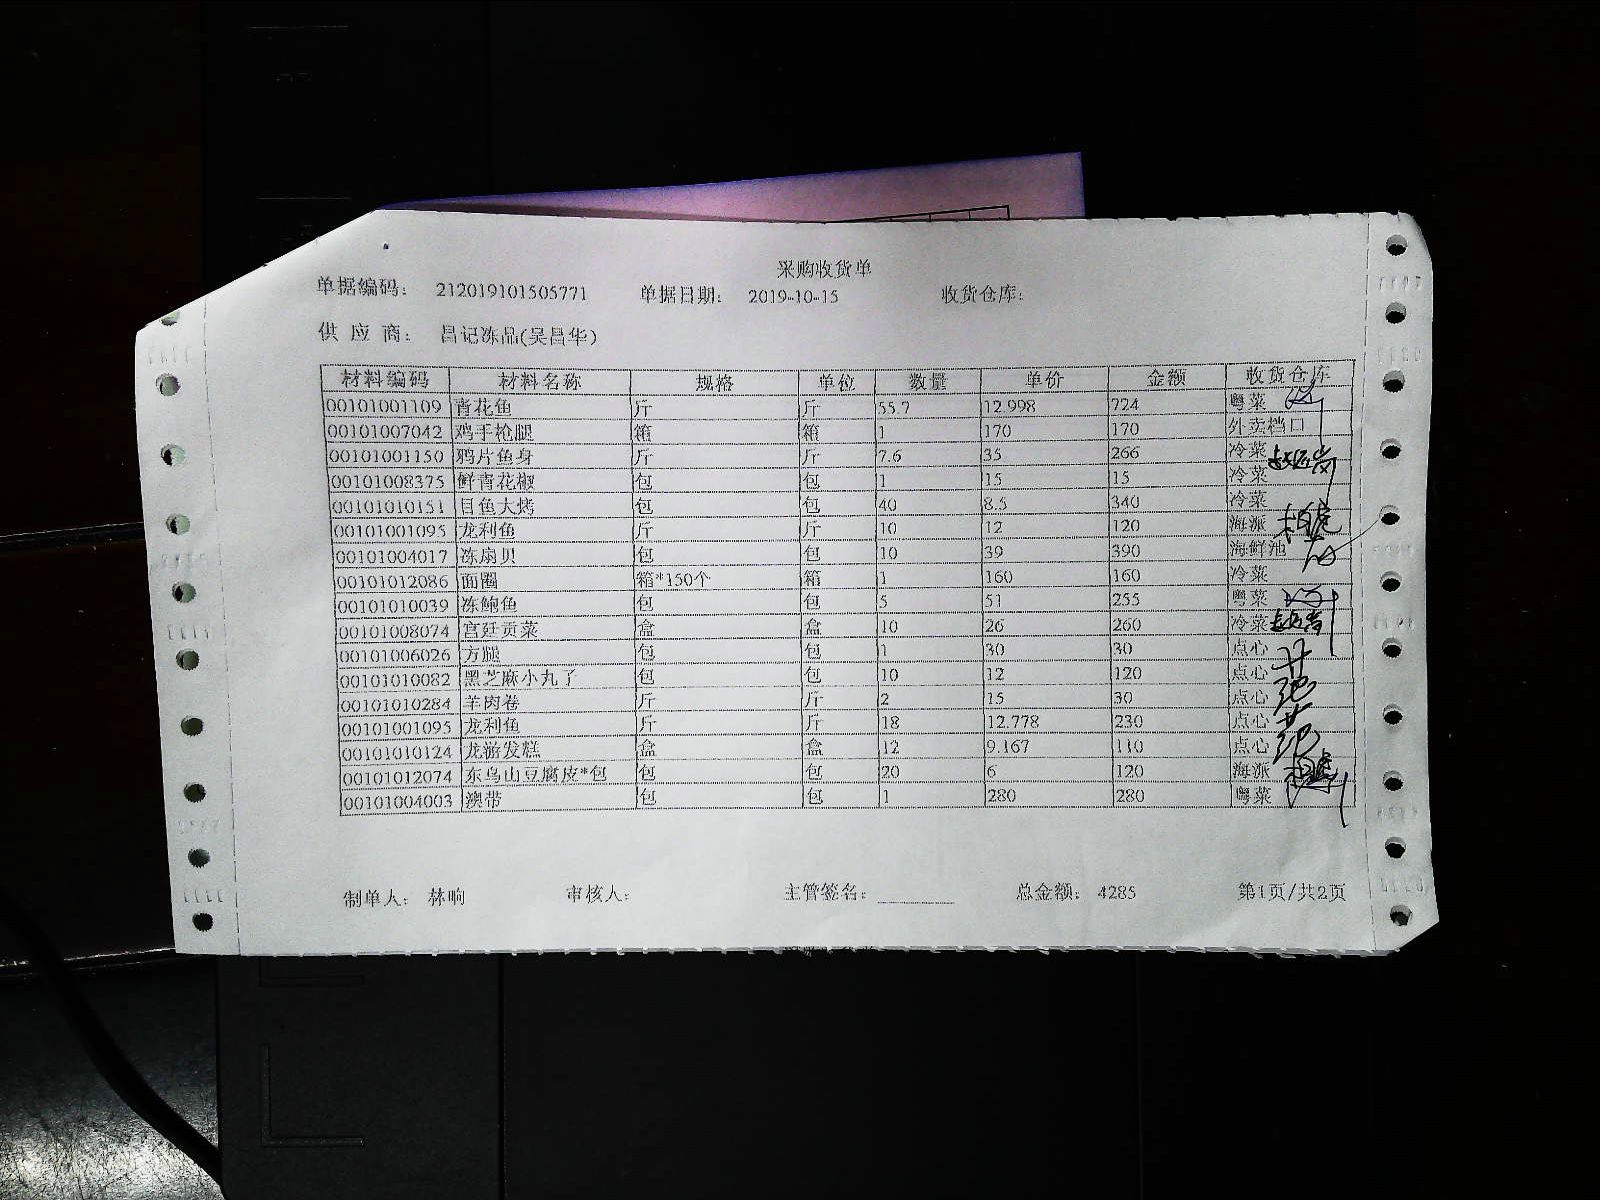 采购收货单
单据编码： 212019101505771 单据日期： 2019-10-15 收货仓库：
供 应 商： 昌记冻品(吴昌华)
材料编码 材料名称 规格 单位 数量 单价 金额 收货仓库
00101001109 青花鱼 斤 斤 55.7 12.998 724 粤菜
00101007042 鸡手枪腿 箱 箱 1 170 170 外卖档口
00101001150 鸦片鱼身 斤 斤 7.6 35 266 冷菜
00101008375 鲜青花椒 包 包 1 15 15 冷菜
00101010151 目鱼大烤 包 包 40 8.5 340 冷菜
00101001095 龙利鱼 斤 斤 10 12 120 海派
00101004017 冻扇贝 包 包 10 39 390 海鲜池
00101012086 面圈 箱*150个 箱 1 160 160 冷菜
00101010039 冻鲍鱼 包 包 5 51 255 粤菜
00101008074 宫廷贡菜 盒 盒 10 26 260 冷菜
00101006026 方腿 包 包 1 30 30 点心
00101010082 黑芝麻小丸子 包 包 10 12 120 点心
00101010284 羊肉卷 斤 斤 2 15 30 点心
00101001095 龙利鱼 斤 斤 18 12.778 230 点心
00101010124 龙游发糕 盒 盒 12 9.167 110 点心
00101012074 东乌山豆腐皮*包 包 包 20 6 120 海派
00101004003 澳带 包 包 1 280 280 粤菜
制单人： 林响 审核人： 主管签名： 总金额： 4285 第1页/共2页